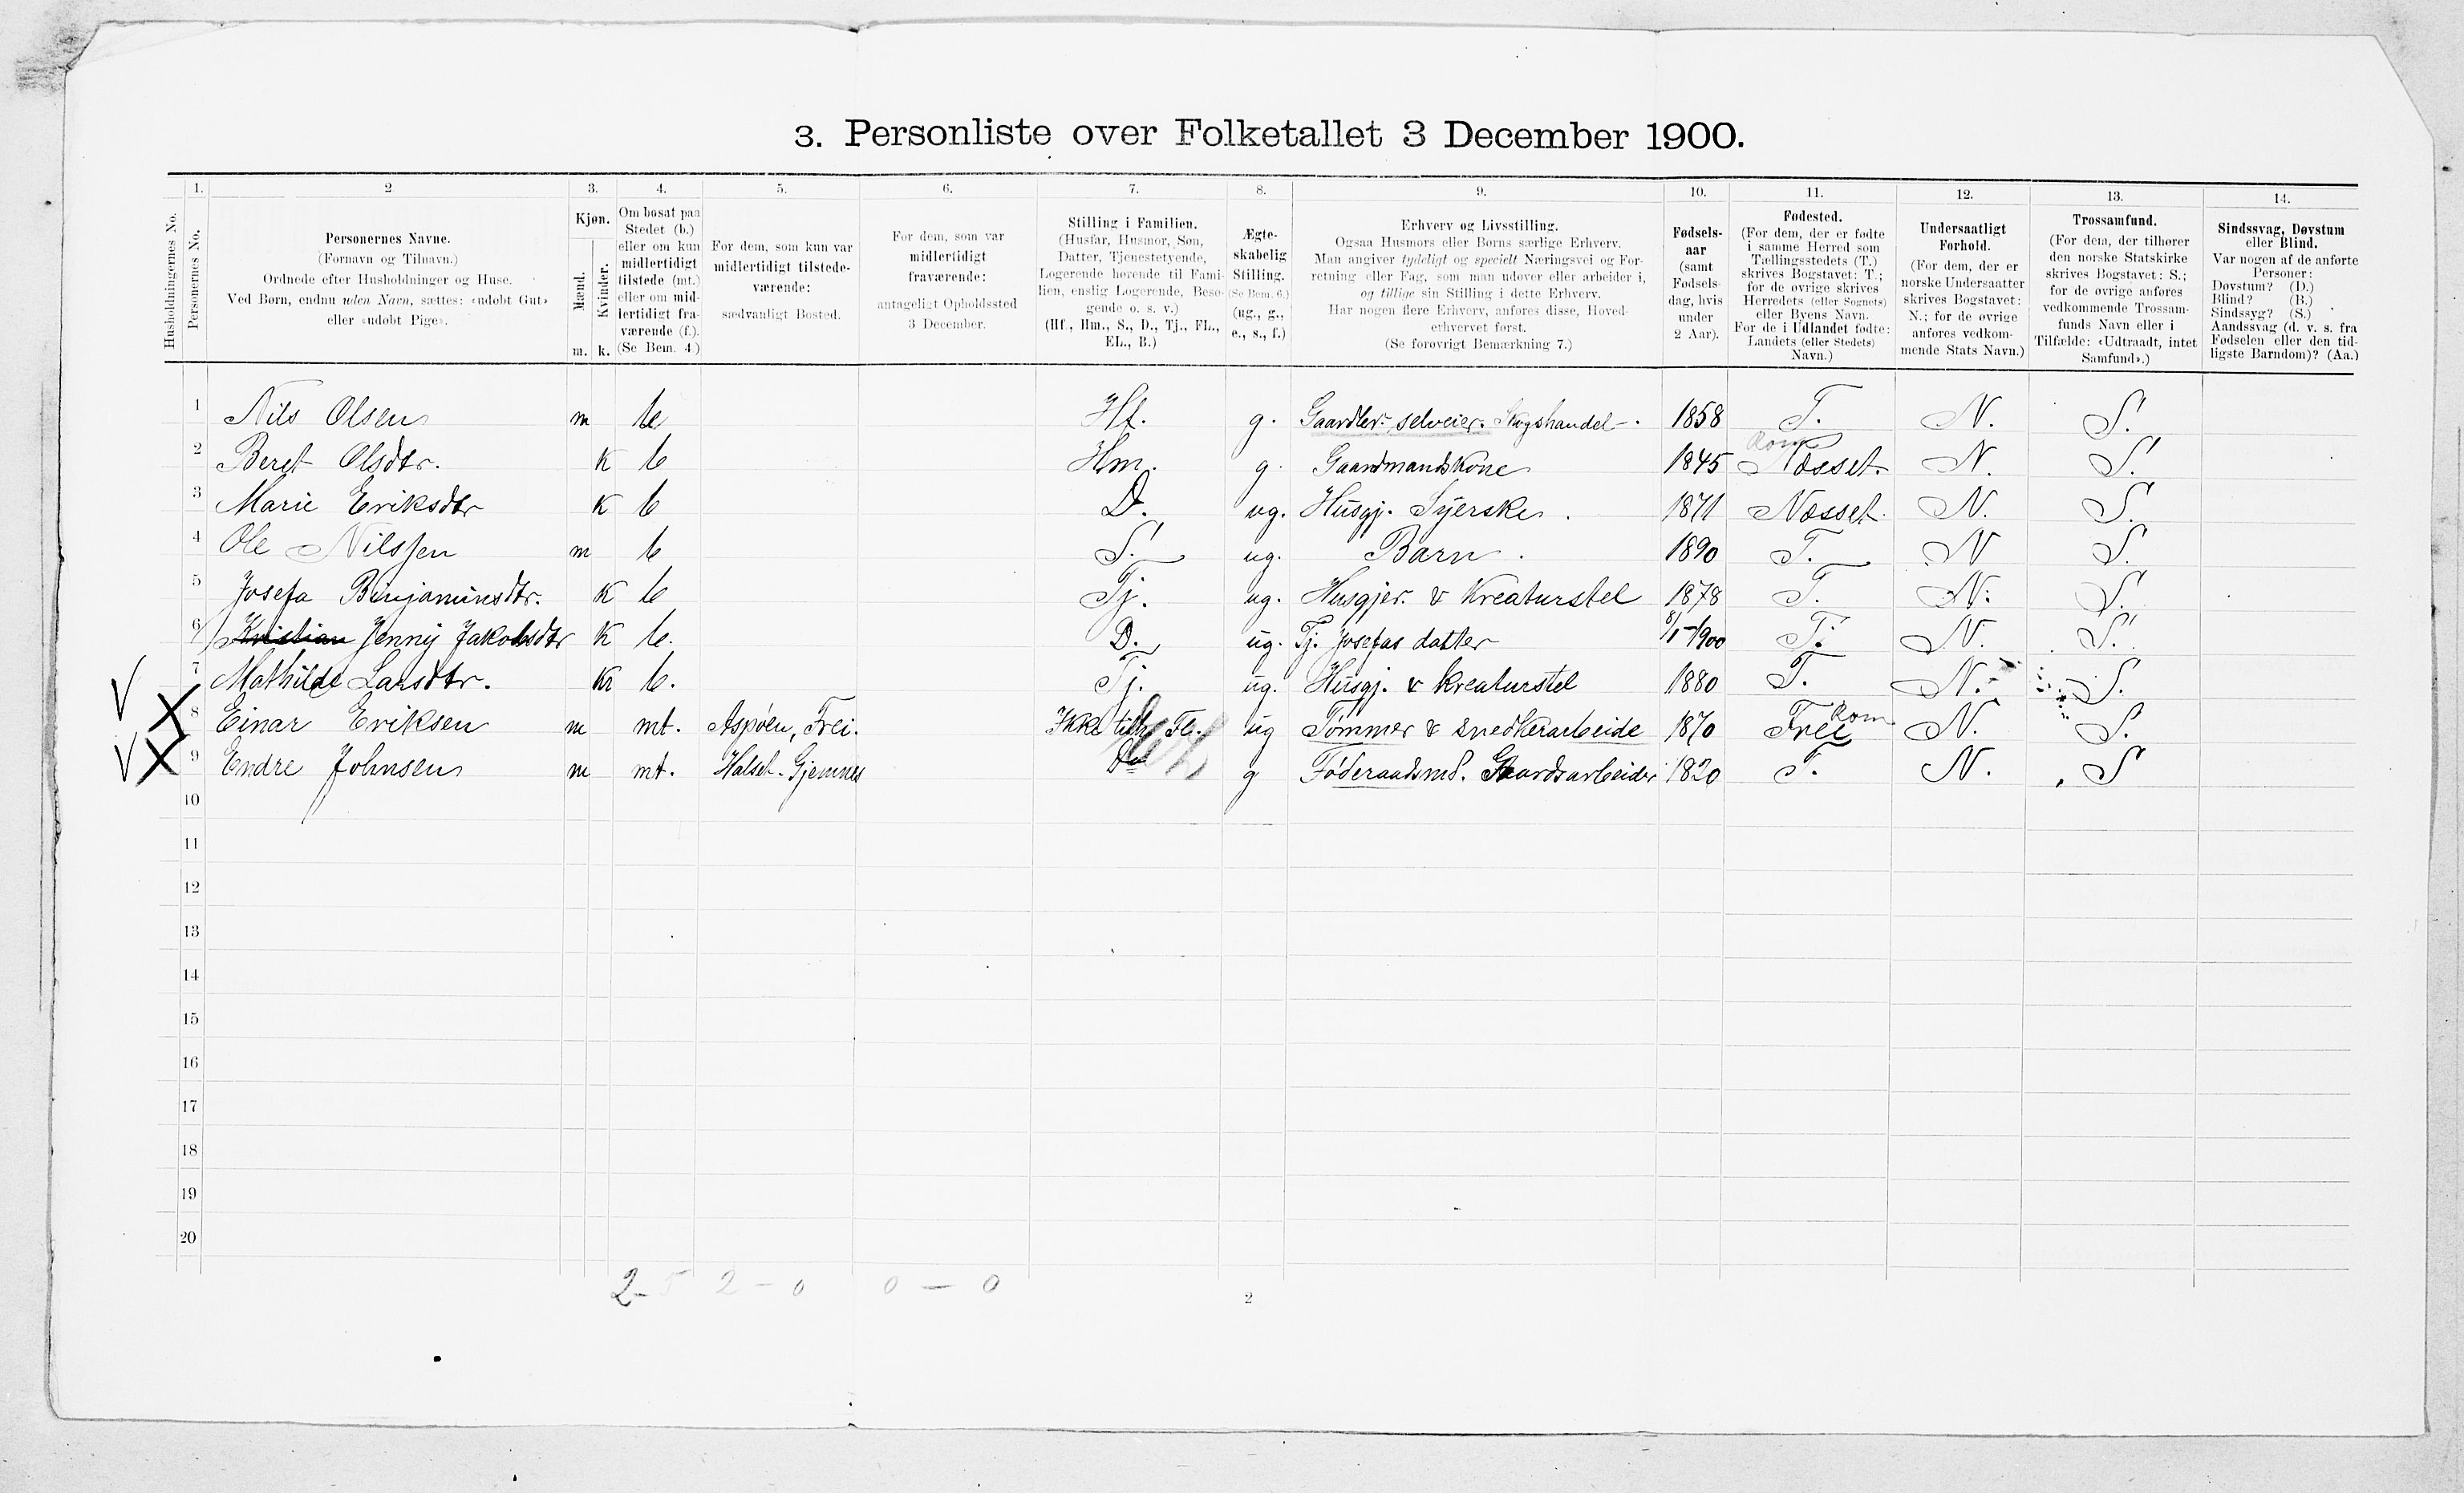 3. Personliste over Folketallet 3 December 1900.
1. 2 3. 4. 5. 6. 7. 8. 9. 10. 11. 12. 13. 14.
Husholdningernes No.
Personernes No.
Personernes Navne.
(Fornavn og Tilnavn.)
Ordnede efter Husholdninger og Huse.
Ved Børn, endnu uden Navn, sættes: «udøbt Gut»
eller «udøbt Pige».
Kjøn.
Mænd.
Kvinder.
m. k.
Om bosat paa
Stedet (b.)
eller om kun
midlertidigt
tilstede (mt.)
eller om mid-
lertidigt fra-
værende (f.).
(Se Bem. 4.)
For dem, som kun var
midlertidigt tilstede-
værende:
sædvanligt Bosted.
For dem, som var
midlertidigt
fraværende:
antageligt Opholdssted
3 December.
Stilling i Familien.
(Husfar, Husmor, Søn,
Datter, Tjenestetyende,
Logerende hørende til Fami-
lien, enslig Logerende, Besø-
gende o. s. v.)
(Hf., Hm., S., D., Tj., FL.,
EL., B.)
Ægte-
skabelig
Stilling.
(Se Bem. 6.)
(ug., g.,
e., s., f.)
Erhverv og Livsstilling.
Ogsaa Husmors eller Børns særlige Erhverv.
Man angiver tydeligt og specielt Næringsvei og For-
retning eller Fag, som man udøver eller arbeider i,
og tillige sin Stilling i dette Erhverv.
Har nogen flere Erhverv, anføres disse, Hoved-
erhvervet først.
(Se forøvrigt Bemærkning 7.)
Fødsels-
aar
(samt
Fødsels-
dag, hvis
under
2 Aar).
Fødested.
(For dem, der er fødte
i samme Herred som
Tællingsstedets (T.)
skrives Bogstavet: T.;
for de øvrige skrives
Herredets (eller Sognets)
eller Byens Navn.
For de i Udlandet fødte:
Landets (eller Stedets)
Navn.)
Undersaatligt
Forhold.
(For dem, der er
norske Undersaatter
skrives Bogstavet:
N.; for de øvrige
anføres vedkom-
mende Stats Navn.)
Trossamfund.
(For dem, der tilhører
den norske Statskirke
skrives Bogstavet: S.;
for de øvrige anføres
vedkommende Trossam-
funds Navn eller i
Tilfælde: «Udtraadt, intet
Samfund».)
Sindssvag, Døvstum
eller Blind.
Var nogen af de anførte
Personer:
Døvstum? (D.)
Blind? (B.)
Sindssyg? (S.)
Aandssvag (d. v. s. fra
Fødselen eller den tid-
ligste Barndom)? (Aa.)
1 Nils Olsen m b Hf. g. Gaardbr. selveier. Skogshandel. 1858 T. N. S.
2 Beret Olsdtr. K b Hm. g. Gaardmandskone 1845 Rom Nesset. N. S.
3 Marie Eriksdtr K b D. ug. Husgj. Syerske. 1871 Nesset. N. S.
4 Ole Nilssen m b S. ug. Barn. 1890 T. N S.
5 Josefa Binjaminsdtr. K b Tj. ug. Husgjer. & Kreaturstel 1878 T. N. S.
6 Kristian Jenny Jakobsdtr K b. D. ug. Tj. Josefas datter 8/1-1900 T. N. S.
7 Mathilde Larsdtr. K b. Tj. ug. Husgj. & kreaturstel 1880 T. N. S.
V X 8 Einar Eriksen m mt. Aspøen, Frei. Ikke tilh. Fl. ug Tømmer & snedkerarbeide 1870 Frei Rom N. S.
V X 9 Endre Johnsen m mt. Halset. Gjemnes g Føderaadsmd. Gaardsarbeider 1820 T. N. S
10
11
12
13
14
15
16
17
18
19
20
2-5 2-0 0-0
2